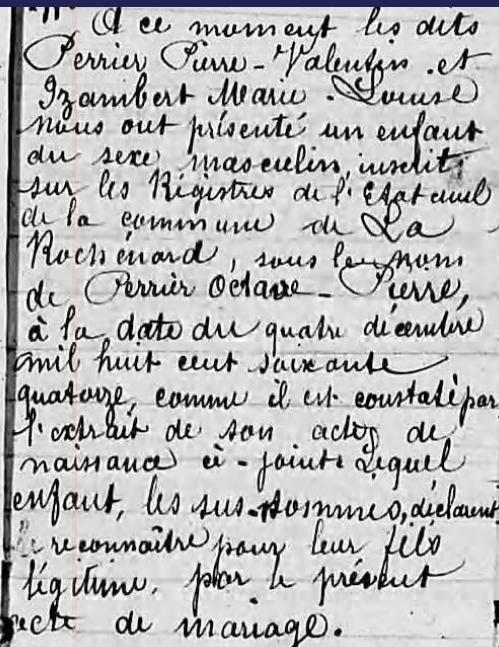 A ce moment les dits
Perrier Pierre-Valentin et
Izambert Marie-Louise
nous ont présenté un enfant
du sexe masculin, inscrit
sur les Régistres de l'Etat civil
de la commune de La
Rochénard, sous les noms
de Perrier Octave-Pierre,
à la date du quatre décembre
mil huit cent soixante
quatorze, comme il est constaté par
l'extrait de son acte de
naissance ci-joint. Lequel
enfant, les sus-nommés, déclarent
le reconnaître pour leur fils
légitime, par le présent
acte de mariage.